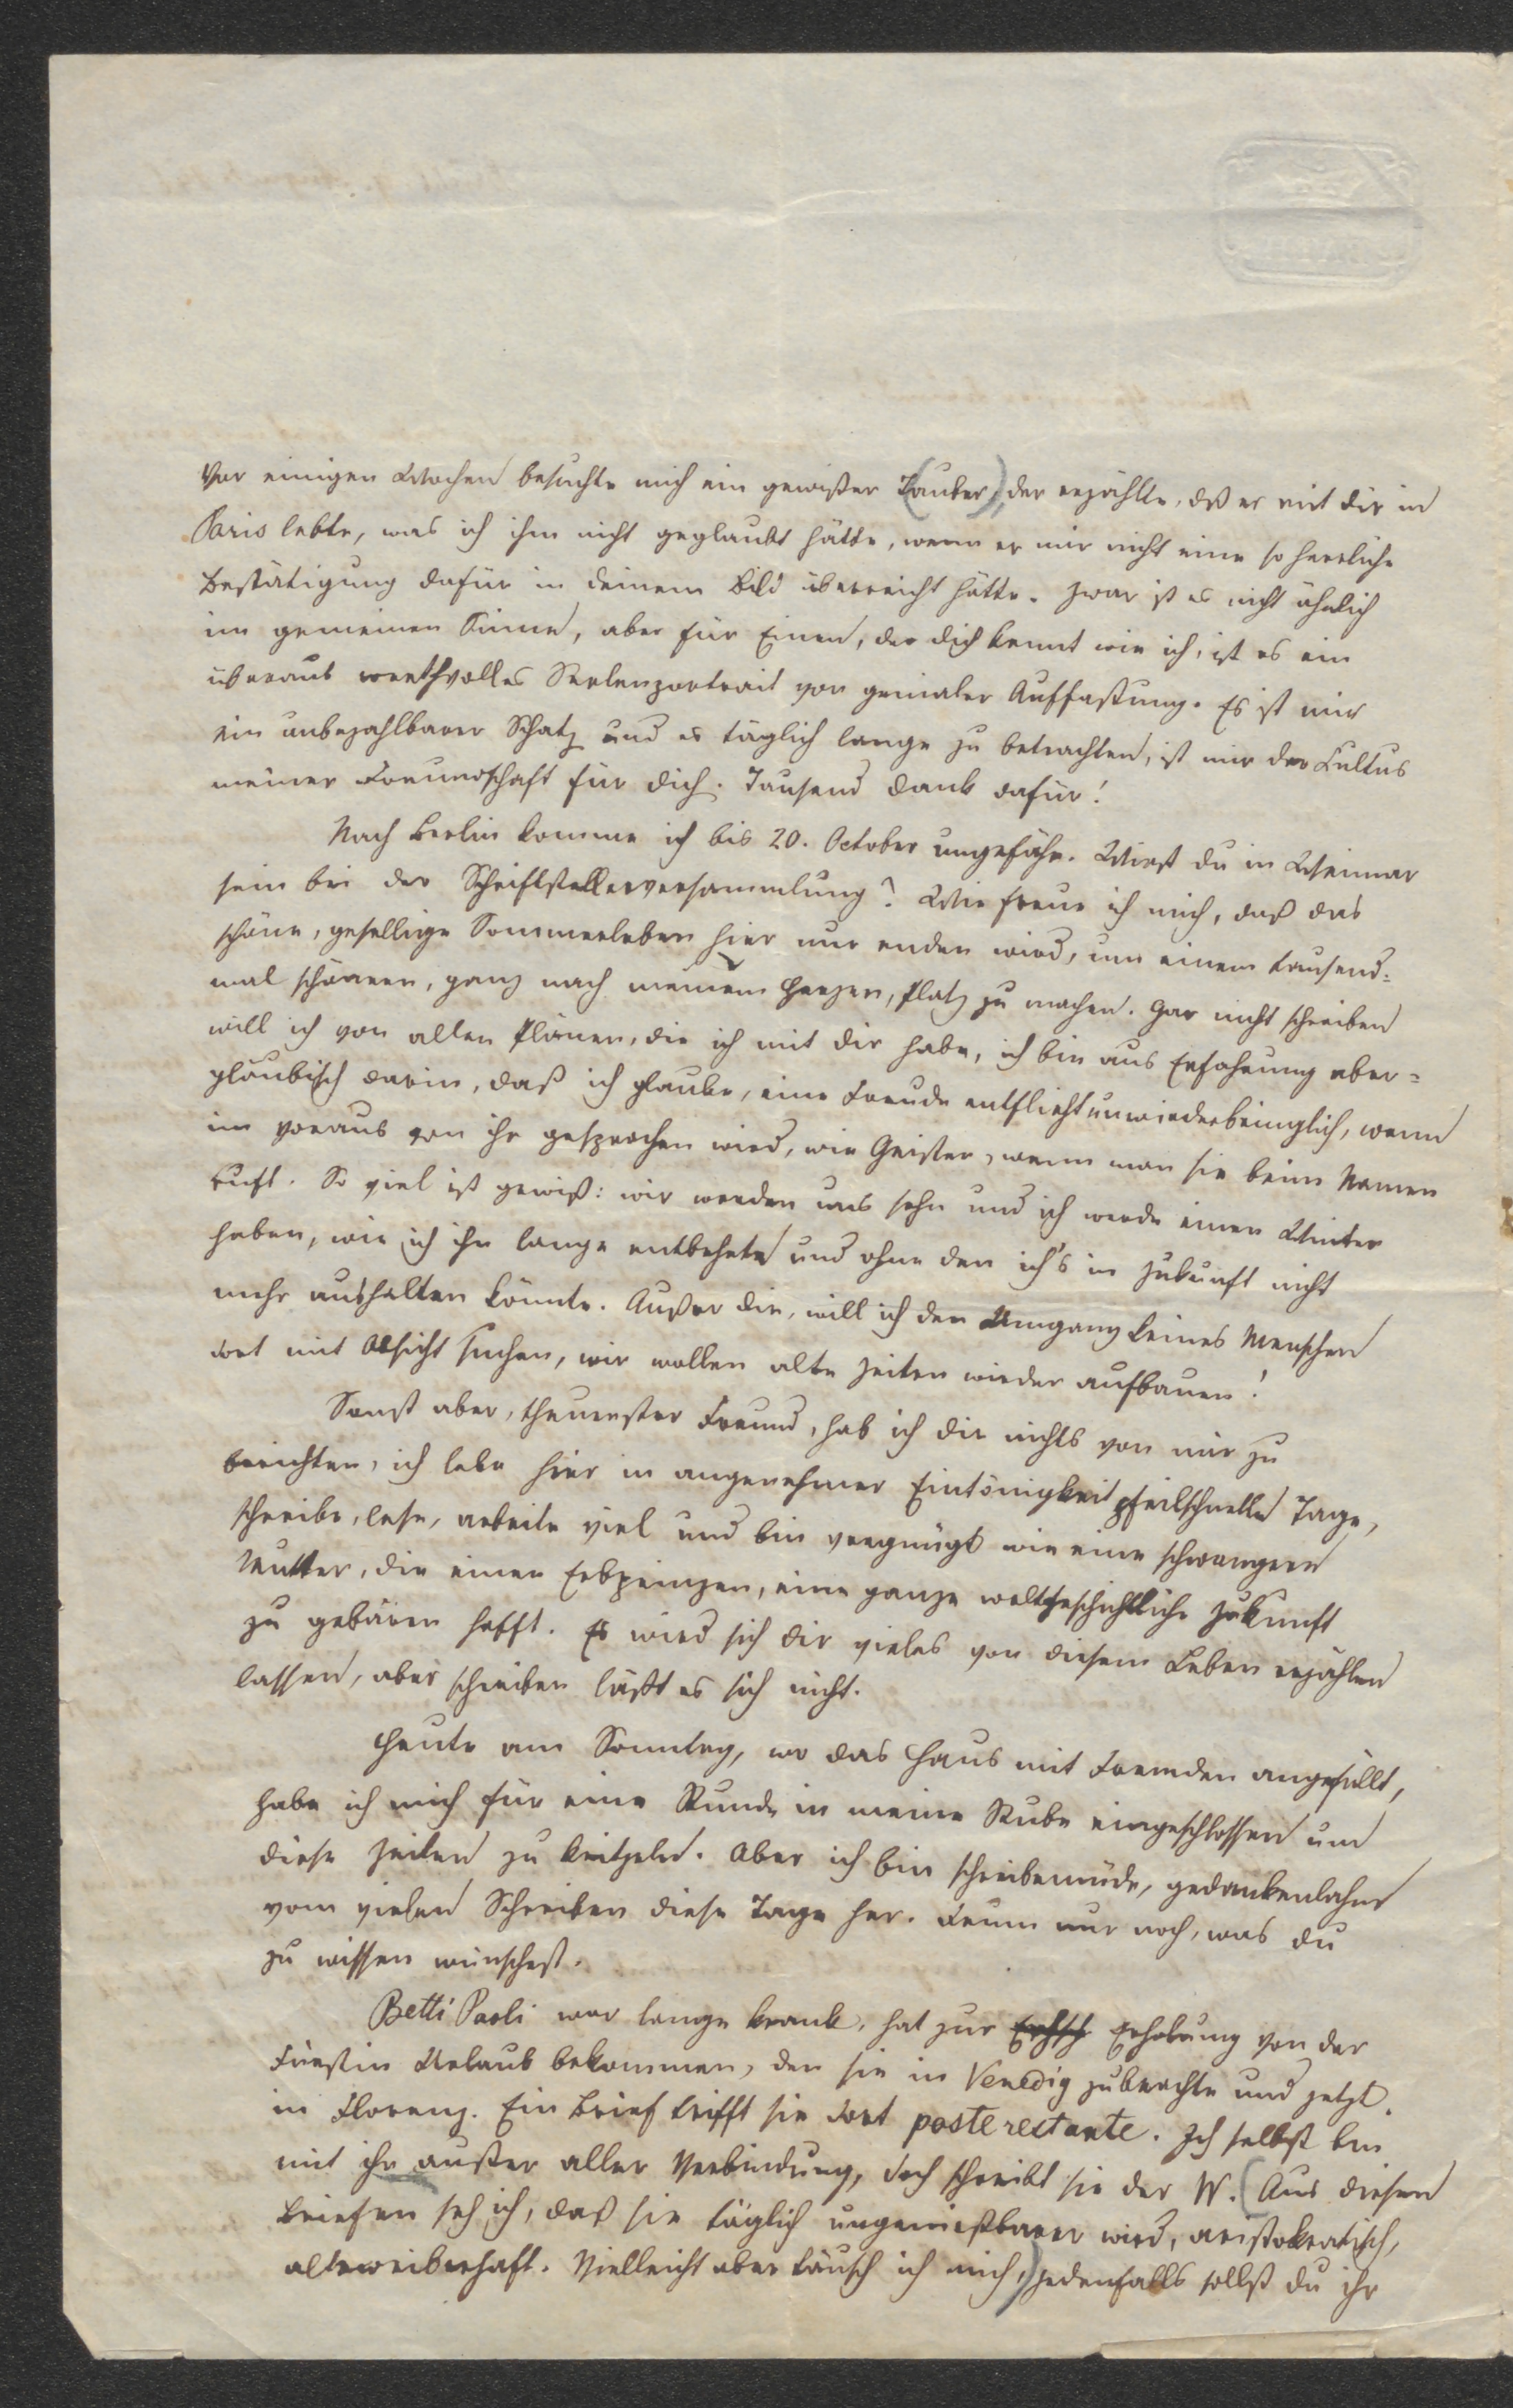 Vor einigen Wochen besuchte mich ein gewißer (Tauber), der erzählte, dß er mit dir in
Paris lebte, was ich ihm nicht geglaubt hätte, wenn er mir nicht eine so herrliche
Bestätigung dafür in deinem Bild überreicht hätte. Zwar ist es nicht ähnlich
im gemeinen Sinne, aber für Einen, der dich kennt wie ich, ist es ein
überaus werthvolles Seelenportrait von genialer Auffaßung. Es ist mir
ein unbezahlbarer Schatz und es täglich lange zu betrachten, ist mir der Kultus
meiner Freundschaft für dich. Tausend Dank dafür!
Nach Berlin komme ich bis 20. October ungefähr. Wirst du in Weimar
sein bei der Schriftstellerversammlung? Wie freue ich mich, daß das
schöne, gesellige Sommerleben hier nur enden wird, um einem tausend-
mal schöneren, ganz nach meinem Herzen, Platz zu machen. Gar nicht schreiben
will ich von allen Plänen, die ich mit dir habe, ich bin aus Erfahrung aber-
gläubisch darin, daß ich glaube, eine Freude entflieht unwiederbringlich, wenn
im voraus von ihr gesprochen wird, wie Geister, wenn man sie beim Namen
ruft. So viel ist gewiß: wir werden uns sehn und ich werde einen Winter
haben, wie ich ihn lange entbehrte und ohne den ich's in Zukunft nicht
mehr aushalten könnte. Außer dir, will ich den Umgang keines Menschen
dort mit Absicht suchen, wir wollen alte Zeiten wieder aufbauen!
Sonst aber, theuerster Freund, hab ich dir nichts von mir zu
berichten, ich lebe hier in angenehmer Eintönigkeit pfeilschnelle Tage,
schreibe, lese, arbeite viel und bin vergnügt wie eine schwangere
Mutter, die einen Erbprinzen, eine ganze weltgeschichtliche Zukunft
zu gebären hofft. Es wird sich dir vieles von diesem Leben erzählen
lassen, aber schreiben läßt es sich nicht.
Heute am Sonntag, wo das Haus mit Fremden angefüllt,
habe ich mich für eine Stunde in meine Stube eingeschlossen um
diese Zeilen zu kritzeln. Aber ich bin schreibemüde, gedankenlahm
vom vielen Schreiben diese Tage her. Drum nur noch, was du
zu wissen wünschest.
Betti Paoli war lange krank, hat zur Erholung von der
Fürstin Urlaub bekommen, den sie in Venedig zubrachte und jetzt
in Florenz. Ein Brief trifft sie dort poste restante. Ich selbst bin
mit ihr außer aller Verbindung, doch schreibt sie der W. (Aus diesen
Briefen seh ich, daß sie täglich ungenießbarer wird, aristokratisch,
altweiberhaft. Vielleicht aber täusch ich mich,) jedenfalls sollst du ihr